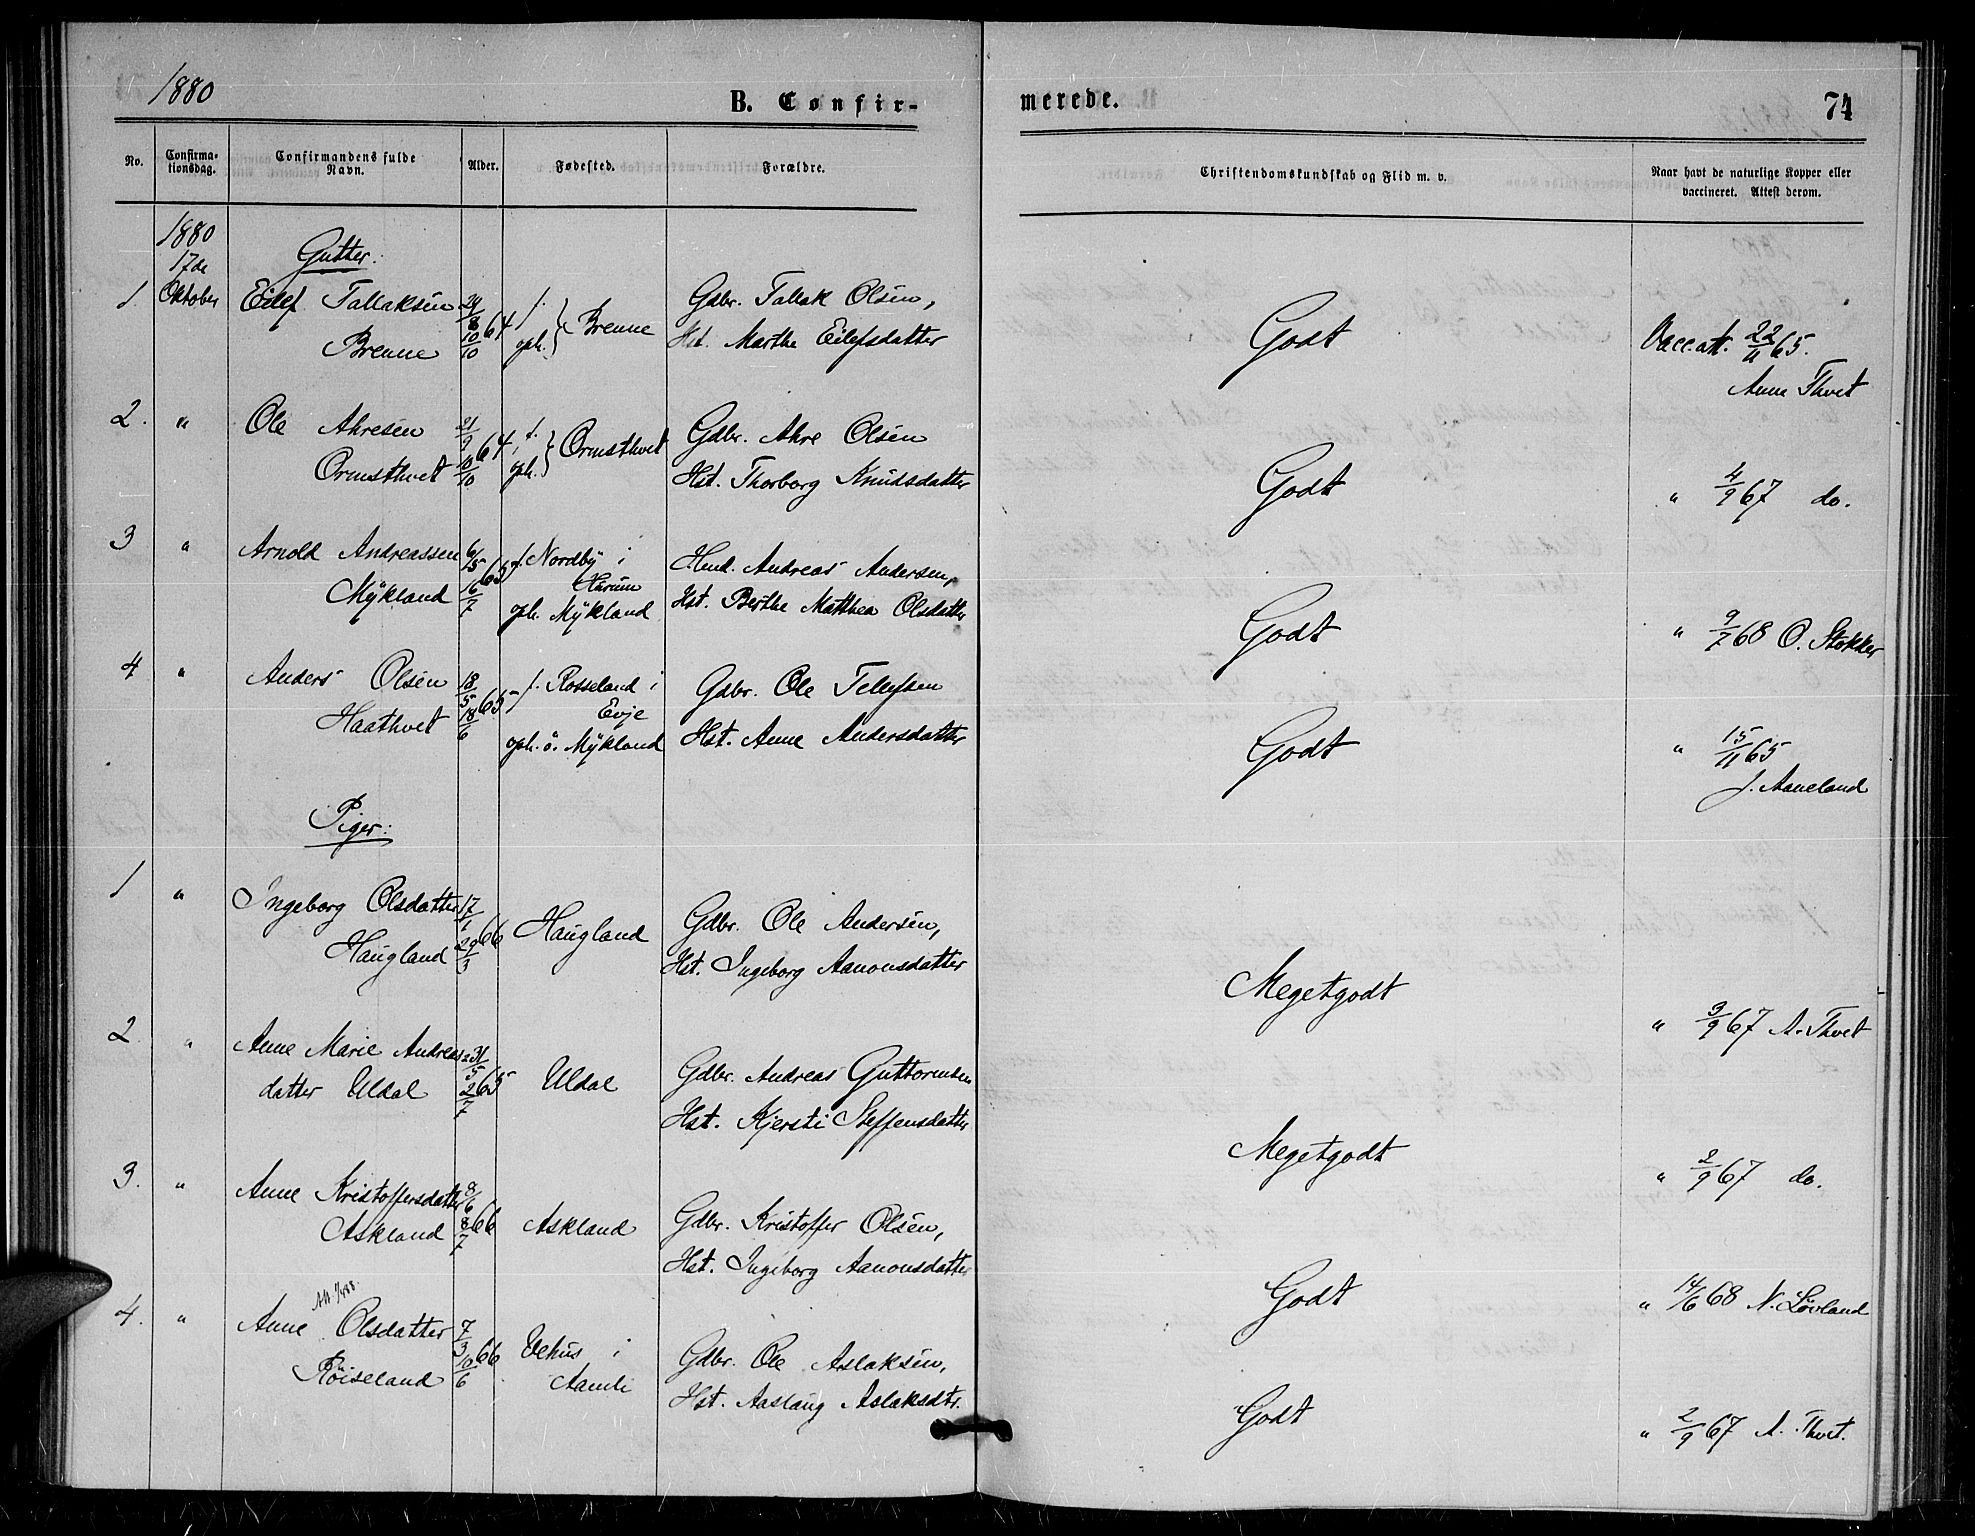 1880
B. Confir-
merede.
74
No.
Confirma-
tionsdag.
Confirmandens fulde
Navn.
Alder.
Fødested.
Forældre.
Christendomskundskab og Flid m. v.
Naar havt de naturlige Kopper eller
vaccineret. Attest derom.
1880
17de
Oktober
Gutter.
1 Eilef Tallaksen 24/8 64 f. Brenne Gdbr. Tallak Olsen,
Brenne 10/10 oph. Hst. Marthe Eilefsdatter
Godt
Vacc.att. 22/11 65.
Anne Thvet
2. " Ole Akresen 21/9 64 f. Ormsthvet Gdbr. Akre Olsen
Ormsthvet 10/10 oph. Hst. Thorborg Knudsdatter
Godt
" 4/9 67 do.
3 " Arnold Andreassen 6/5 65 f. Nordby i Hmd. Andreas Andersen,
Hurum
Mykland 16/7 oph. Mykland Hst. Berthe Matthea Olsdatter
Godt
" 9/7 68 O. Stokker
4 " Anders Olsen 18/5 65 f. Rosseland i Gdbr. Ole Tellefsen
Evje
Haathvet 18/6 oph. ö. Mykland Hst. Anne Andersdatter
Godt
" 15/11 65
J. Aaneland
Piger:
1 " Ingeborg Olsdatter 17/1 66 Haugland Gdbr. Ole Andersen,
Haugland 29/3 Hst. Ingeborg Aanonsdatter
Megetgodt
" 3/9 67 A. Thvet
2. " Anne Marie Andreas= 31/5 65 Uldal Gdbr. Andreas Guttormsen
datter Uldal 2/7 Hst. Kjersti Steffensdatter
Megetgodt
" 2/9 67 do.
3. " Anne Kristoffersdatter 8/6 66 Askland Gdbr. Kristoffer Olsen,
Askland 8/7 Hst. Ingeborg Aanonsdatter
Godt
" 14/6 68 N. Lövland
Att.
4. " Anne Olsdatter 7/3 66 Vehus i Gdbr. Ole Aslaksen,
Röiseland 10/6 Aamli Hst. Aaslaug Aslaksdtr.
Godt
" 2/9 67 A. Thvet.